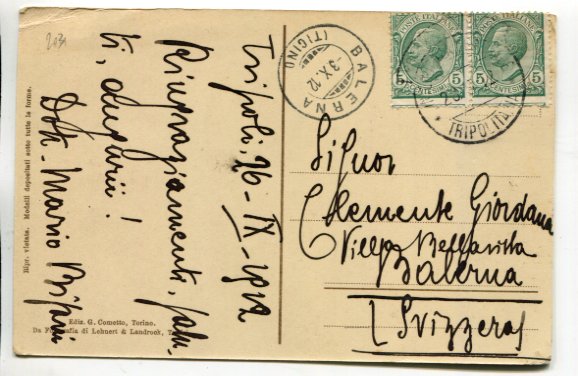 203
Tripoli, 26-IX-1912
Ringraziamenti, salu-
ti, auguri!
Dott. Mario
Ripr. vietata. Modelli depositati sotto tutte le forme.
Ediz. G. Cometto, Torino.
Da Fotografia di Lehnert & Landrock,
BALERNA
-3.X.12
(TICINO)
POSTE ITALIANE
5 CENTESIMI 5
POSTE ITALIANE
5 CENTESIMI 5
* TRIPOLI
Signor
Clemente Giordana
Villa Bellavista
Balerna
(Svizzera)